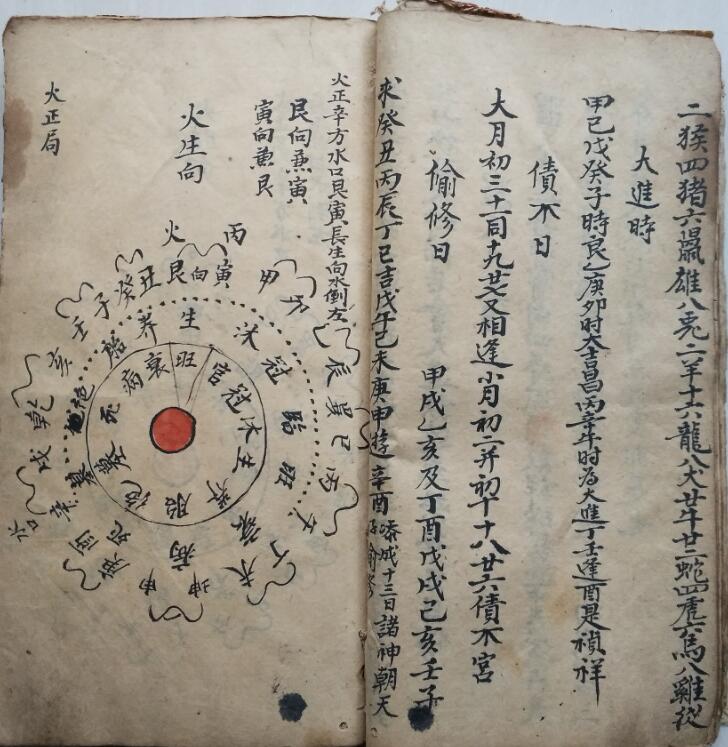 二猴四猪六鼠雄八兎二羊十六龍八犬廿牛廿二蛇四虎六馬八雞從
大進時
甲己戊癸子時良乙庚卯时大吉昌丙辛午时為大進丁壬逢酉是禎祥
債不日
大月初三十一同十九廿七又相逢小月初二并初十十八廿六債不宮
偷修日
甲戌乙亥及丁酉戊戌己亥壬子
求癸丑丙辰丁巳吉戊午己未庚申逰辛酉
添成十三日諸神朝天
好偷修
火正辛方水口艮寅長生向水倒左
艮向兼寅
寅向兼艮
火生向
火正局
火
丙
丑艮向寅甲
癸子壬
辰巽巳丙
丁未
坤申
庚
戌乾
生沐冠臨
旺衰病
墓
胎养
旺官冠沐生养胎
死病衰